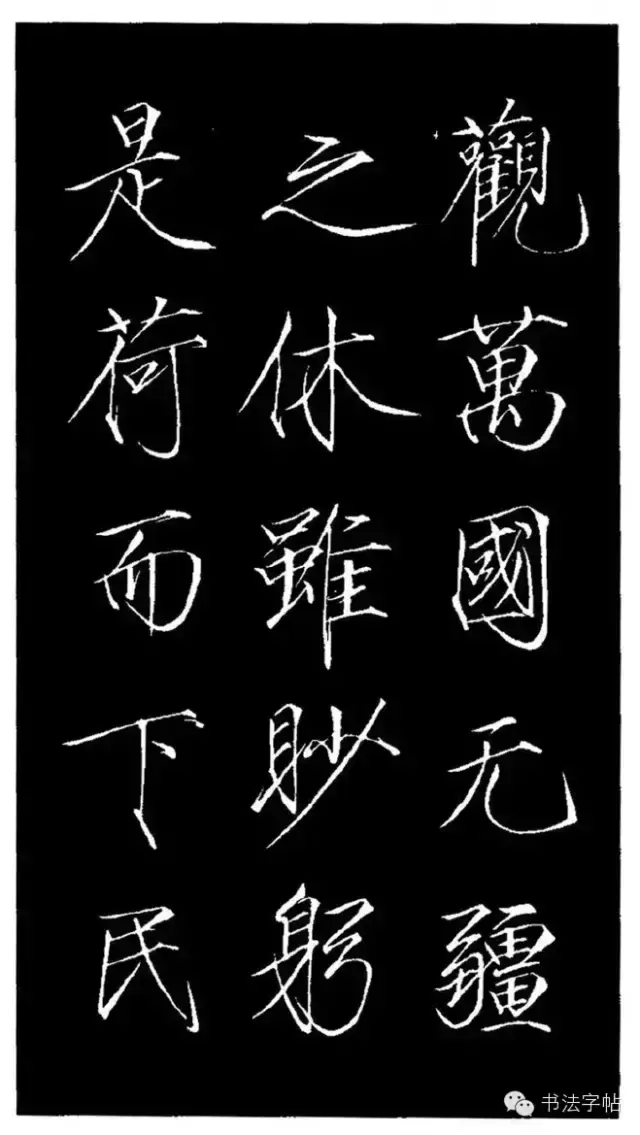 觀萬國无疆
之休雖眇躬
是荷而下民
书法字帖